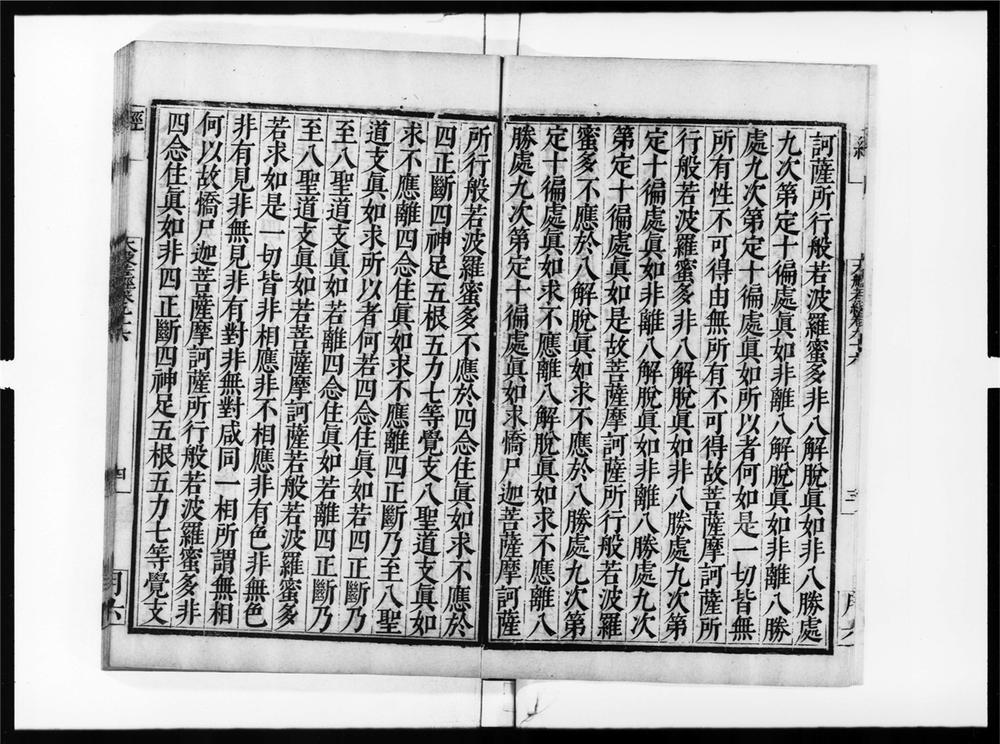 訶薩所行般若波羅蜜多非八解脫眞如非八勝處
九次第定十徧處眞如非離八解脫眞如非離八勝
處九次第定十徧處眞如所以者何如是一切皆無
所有性不可得由無所有不可得故菩薩摩訶薩所
行般若波羅蜜多非八解脫眞如非八勝處九次第
定十徧處眞如非離八解脫眞如非離八勝處九次
第定十徧處眞如是故菩薩摩訶薩所行般若波羅
蜜多不應於八解脫眞如求不應於八勝處九次第
定十徧處眞如求不應離八解脫眞如求不應離八
勝處九次第定十徧處眞如求憍尸迦菩薩摩訶薩
所行般若波羅蜜多不應於四念住眞如求不應於
四正斷四神足五根五力七等覺支八聖道支眞如
求不應離四念住眞如求不應離四正斷乃至八聖
道支眞如求所以者何若四念住眞如若四正斷乃
至八聖道支眞如若離四念住眞如若離四正斷乃
至八聖道支眞如若菩薩摩訶薩若般若波羅蜜多
若求如是一切皆非相應非不相應非有色非無色
非有見非無見非有對非無對咸同一相所謂無相
何以故憍尸迦菩薩摩訶薩所行般若波羅蜜多非
四念住眞如非四正斷四神足五根五力七等覺支
經
四